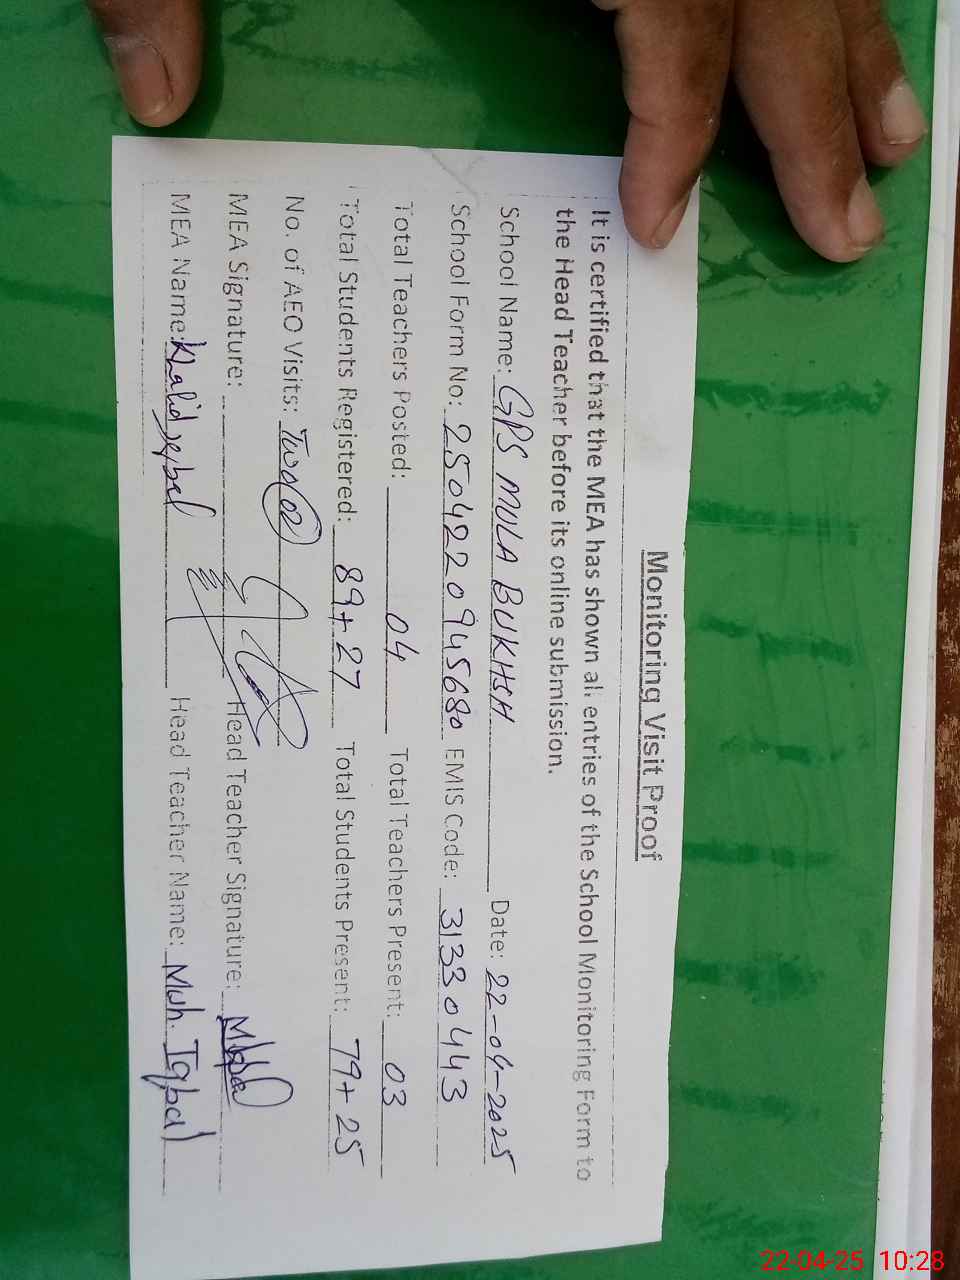 Monitoring Visit Proof
It is certified that the MEA has shown all entries of the School Monitoring Form to
the Head Teacher before its online submission.
School Name: GPS MULA BUKHSH Date: 22-04-2025
School Form No: 2504220945680 EMIS Code: 31330443
Total Teachers Posted: 04 Total Teachers Present: 03
Total Students Registered: 89+27 Total Students Present: 79+25
No. of AEO Visits: Two (02)
MEA Signature: Head Teacher Signature: MIqbal
MEA Name: Khalid Iqbal Head Teacher Name: Muh. Iqbal
22-04-25 10:28